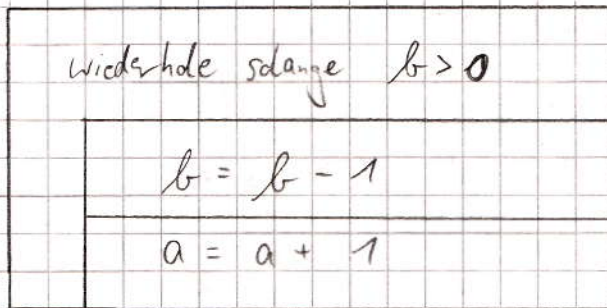 wiederhole solange b > 0
b = b - 1
a = a + 1